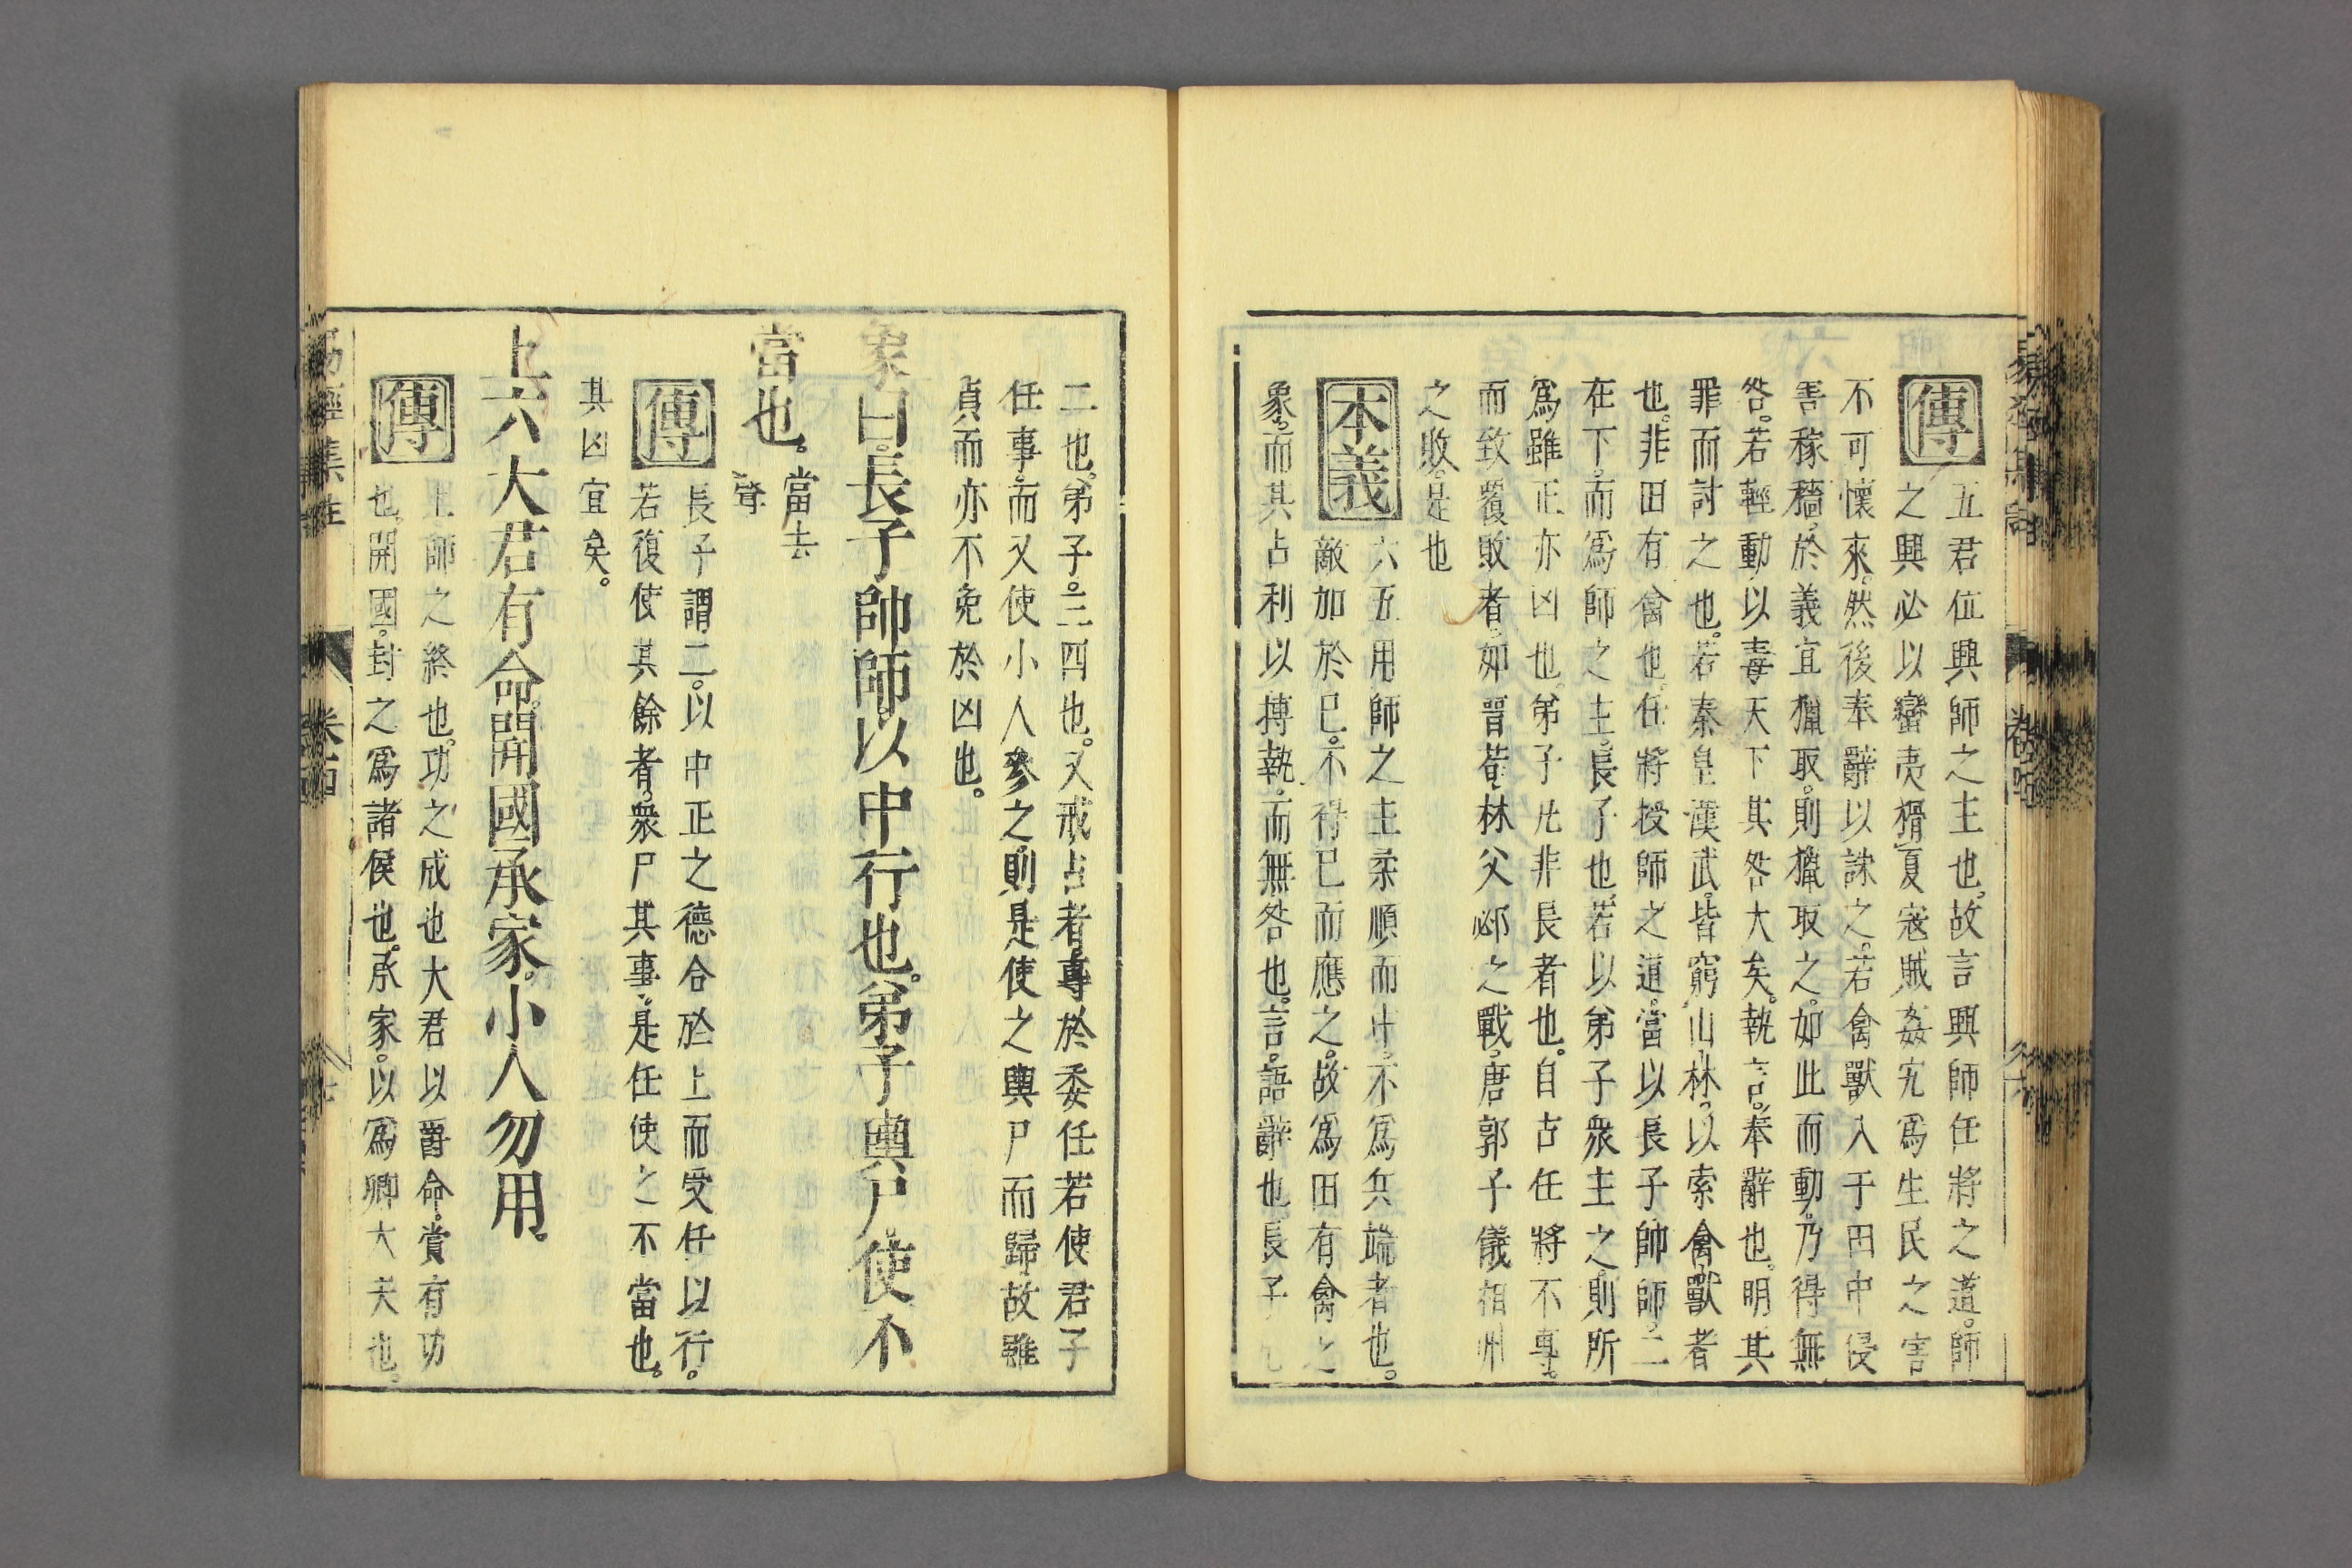 傳
五君位興師之主也。故言興師任將之道。師
之興必以蠻夷猾夏寇賊姦宄爲生民之害
不可懷來。然後奉辭以誅之。若禽獸入于田中侵
害稼穡。於義宜獵取。則獵取之。如此而動。乃得無
咎。若輕動以毒天下其咎大矣。執言。奉辭也。明其
罪而討之也。若秦皇漢武。皆窮山林。以索禽獸者
也。非田有禽也。任將授師之道。當以長子帥師。二
在下。而爲師之主。長子也。若以弟子衆主之則所
爲雖正亦凶也。弟子凡非長者也。自古任將不專。
而致覆敗者。如晉荀林父邲之戰。唐郭子儀相州
之敗。是也
本義
六五用師之主柔順而中。不爲兵端者也。
敵加於已。不得已而應之。故爲田有禽之
象。而其占利以搏執。而無咎也。言。語辭也長子
二也。弟子。三四也。又戒占者專於委任若使君子
任事。而又使小人參之則是使之輿尸而歸故雖
貞而亦不免於凶也。
象曰。長子帥師。以中行也。弟子輿尸。使不
當也。當去聲
傳
長子謂二。以中正之德合於上而受任以行。
若復使其餘者。衆尸其事。是任使之不當也。
其凶宜矣。
上六大君有命。開國承家。小人勿用。
傳
上師之終也。功之成也大君以爵命。賞有功
也。開國。封之爲諸侯也。承家。以爲卿大夫也。
易經集註
卷四